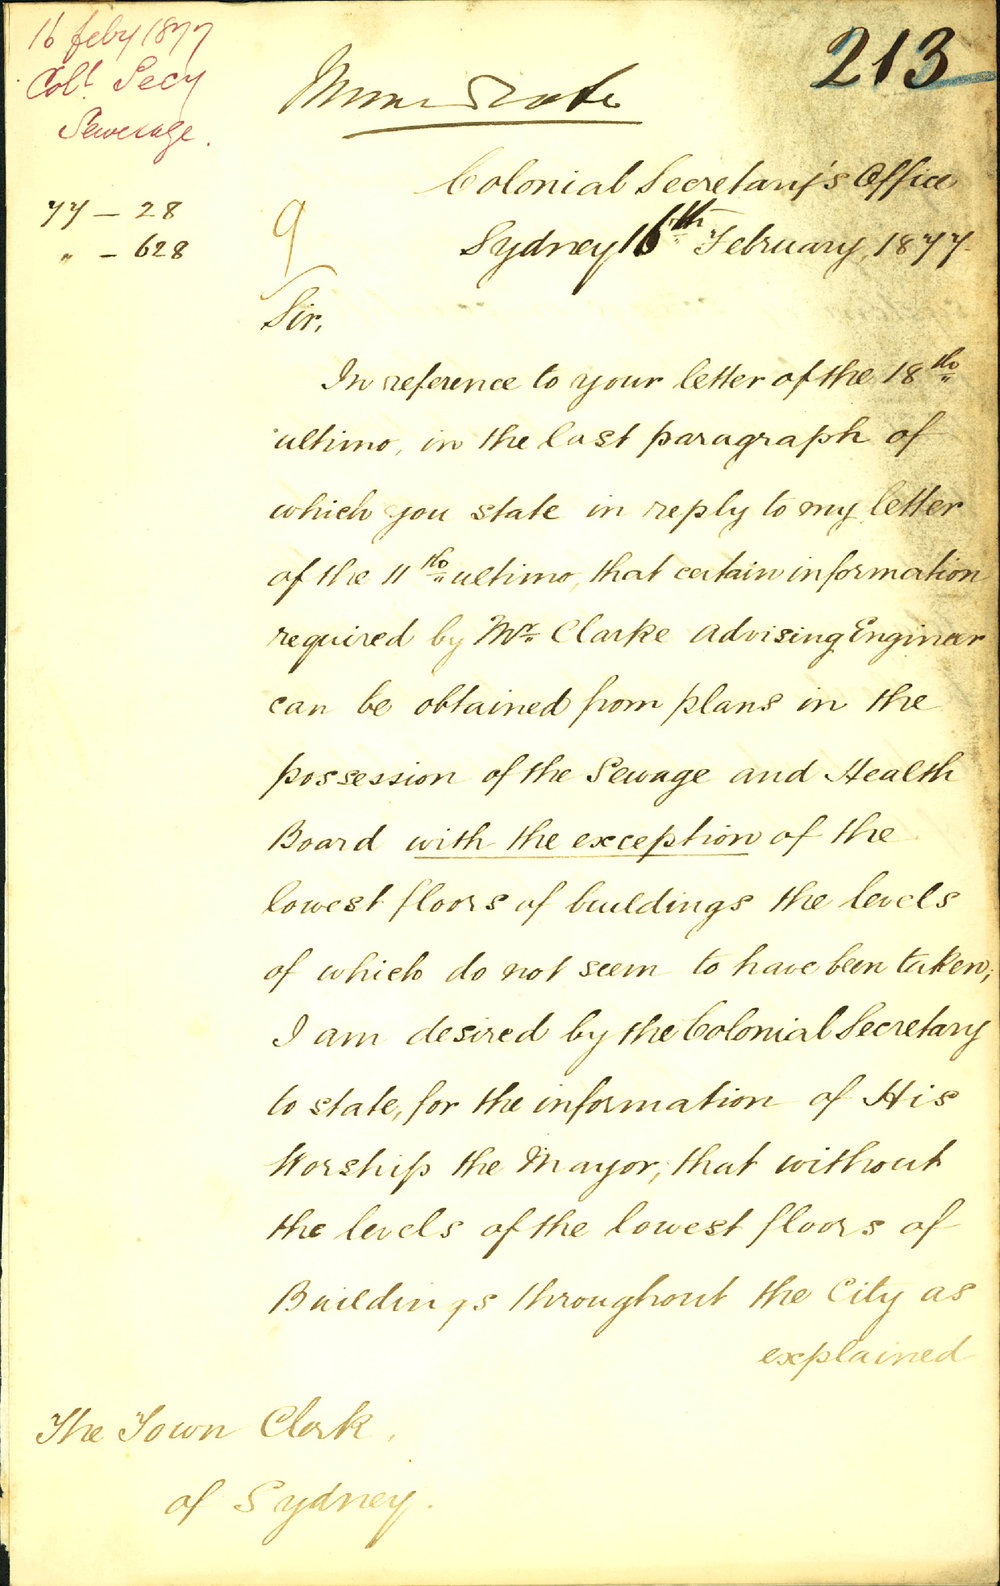 16 feby 1877
Col! Secy
Sewerage.
77 – 28
" – 628
213
9
Colonial Secretary's Office
Sydney 16th February, 1877
Sir,
In reference to your letter of the 18th
ultimo, in the last paragraph of
which you state in reply to my letter
of the 11th ultimo, that certain information
required by Mr. Clarke Advising Engineer
can be obtained from plans in the
possession of the Sewage and Health
Board with the exception of the
lowest floors of buildings the levels
of which do not seem to have been taken;
I am desired by the Colonial Secretary
to state, for the information of His
Worship the Mayor, that without
the levels of the lowest floors of
Buildings throughout the City as
explained
The Town Clerk,
of Sydney.